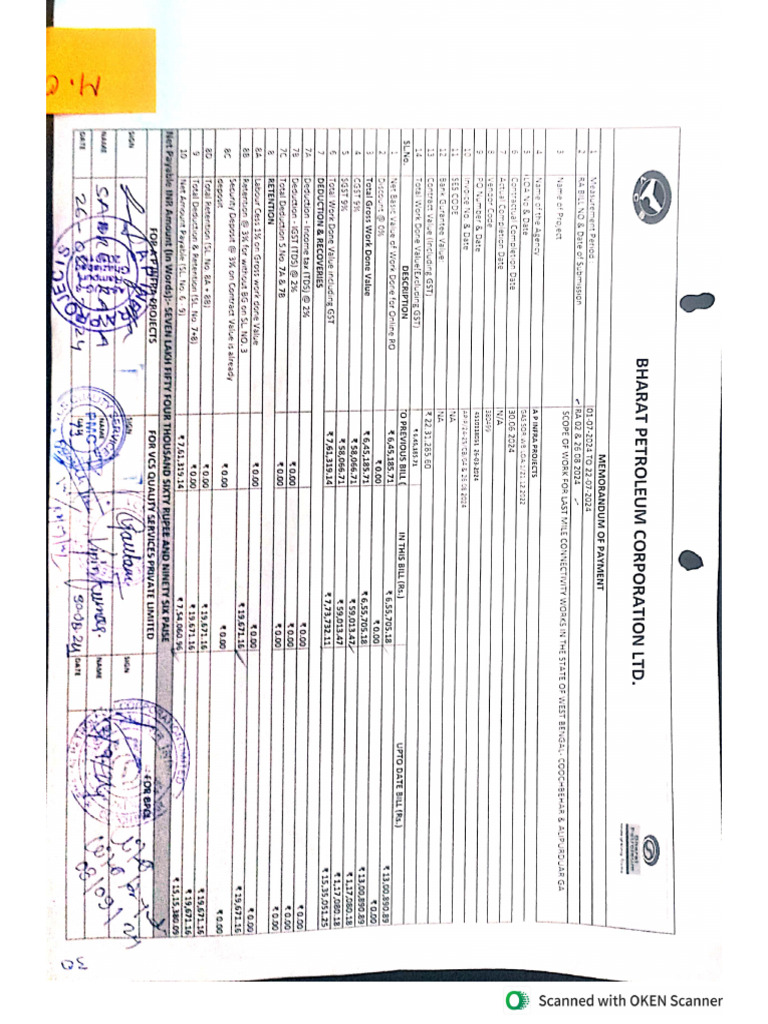 BHARAT PETROLEUM CORPORATION LTD.
Bharat Petroleum
MEMORANDUM OF PAYMENT
1 Measurement Period 01-07-2024 TO 22-07-2024
2 RA BILL NO & Date of Submission RA 02 & 26 08 2024
3 Name of Project SCOPE OF WORK FOR LAST MILE CONNECTIVITY WORKS IN THE STATE OF WEST BENGAL- COOCHBEHAR & ALIPURDUAR GA
4 Name of the Agency A P INFRA PROJECTS
5 LOA No. & Date
6 Contractual Completion Date 30.06 2024
7 Actual Completion Date N/A
8 Code
9 PO Number & Date
10 Invoice No. & Date
11 SES CODE NA
12 Bank Gurantee Value: NA
13 Contract Value (including GST) ₹ 22,31,285.60
14 Total Work Done Value(Excluding GST) ₹ 6,45,185.71
SL.No. DESCRIPTION TO PREVIOUS BILL ( IN THIS BILL (Rs.) UPTO DATE BILL (Rs.)
1 Net Basic Value of Work Done for Online PO ₹ 6,45,185.71 ₹ 6,55,705.18 ₹ 13,00,890.89
2 Discount @ 0% ₹ 0.00 ₹ 0.00 ₹ 0.00
3 Total Gross Work Done Value ₹ 6,45,185.71 ₹ 6,55,705.18 ₹ 13,00,890.89
4 CGST 9% ₹ 58,066.71 ₹ 59,013.47 ₹ 1,17,080.18
5 SGST 9% ₹ 58,066.71 ₹ 59,013.47 ₹ 1,17,080.18
6 Total Work Done Value including GST ₹ 7,61,319.14 ₹ 7,73,732.11 ₹ 15,35,051.25
7 DEDUCTION & RECOVERIES
7A Deduction - Income tax (TDS) @ 2% ₹ 0.00 ₹ 0.00
7B Deduction - IGST (TDS) @ 2% ₹ 0.00 ₹ 0.00 ₹ 0.00
7C Total Deduction S No. 7A & 7B ₹ 0.00 ₹ 0.00 ₹ 0.00
8 RETENTION
8A Labour Cess 1% on Gross work done Value ₹ 0.00 ₹ 0.00 ₹ 0.00
8B Retention @ 3% for without BG on SL. NO. 3 ₹ 19,671.16 ₹ 19,671.16
8C Security Deposit @ 3% on Contract Value is already deposit ₹ 0.00 ₹ 0.00 ₹ 0.00
8D Total Retention (SL. No. 8A + 8B) ₹ 0.00 ₹ 19,671.16 ₹ 19,671.16
9 Total Deduction & Retention (SL. No. 7+8) ₹ 0.00 ₹ 19,671.16 ₹ 19,671.16
10 Net Amount Payable (SL. No. 6 - 9) ₹ 7,61,319.14 ₹ 7,54,060.96 ₹ 15,15,380.09
Net Payable INR Amount (In Words):- SEVEN LAKH FIFTY FOUR THOUSAND SIXTY RUPEE AND NINETY SIX PAISE
FOR A P INFRA PROJECTS FOR VCS QUALITY SERVICES PRIVATE LIMITED FOR BPCL
SIGN SIGN Gautam SIGN
NAME NAME Vipin Kumar NAME
DATE 26-08-2024 30-08-24 DATE
30
Scanned with OKEN Scanner